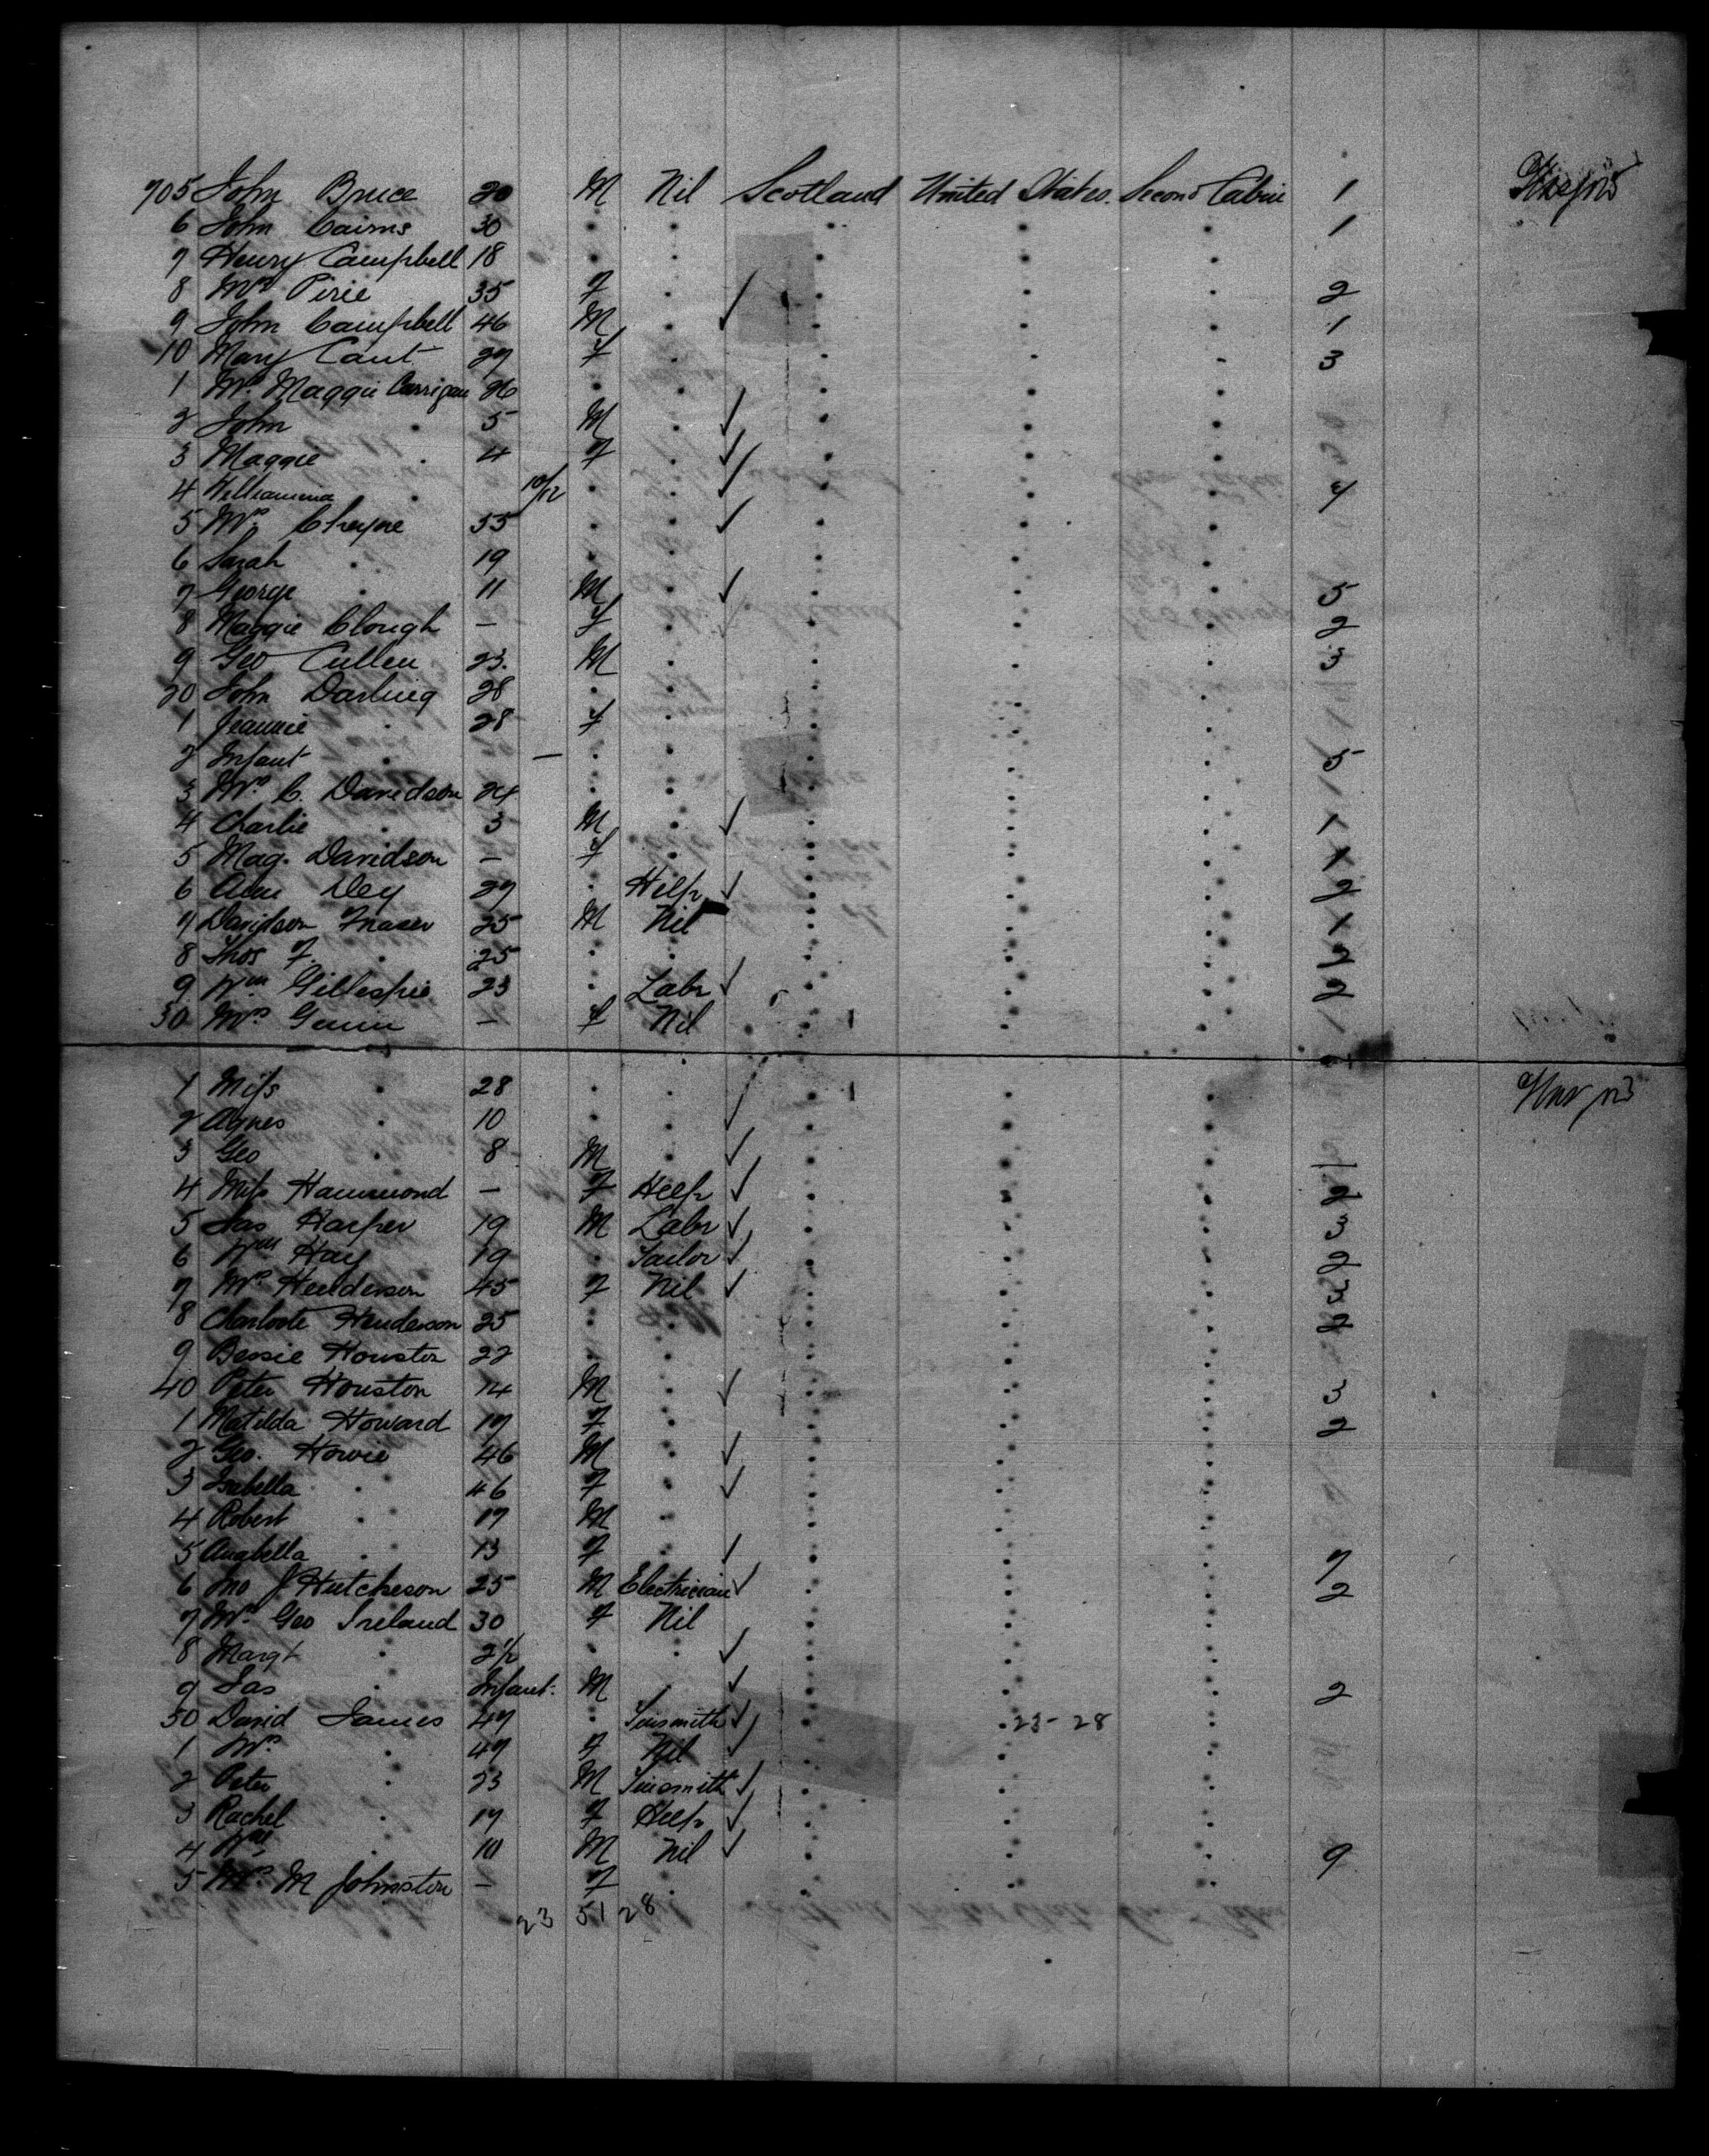 705 John Bruce 20 M Nil Scotland United States Second Cabin 1
6 John Cairns 30 1
7 Henry Campbell 18
8 Mrs Pirie 35 F ✓ 2
9 John Campbell 46 M 1
10 Mary Cant 27 F 3
1 Mrs Maggie Carrigan 26
2 John 5 M ✓
3 Maggie 4 F ✓
4 Williamina 10/12 ✓ 4
5 Mrs Cheyne 55 ✓
6 Sarah 19
7 George 11 M ✓ 5
8 Maggie Clough — F 2
9 Geo Cullen 23 M 3
20 John Darling 28
1 Jeannie 28 F
2 Infant — 5
3 Mrs C. Davidson 24
4 Charlie 3 M ✓ 1
5 Mag. Davidson — F 1
6 Ann Dey 27 Help ✓ 2
7 Davidson Fraser 25 M Nil 1
8 Thos F. 25 2
9 Wm Gillespie 23 Labr ✓ 2
30 Mrs — F Nil
1 Miss 28
2 Agnes 10 ✓
3 Geo 8 M ✓
4 Miss Hammond — F Help ✓ 2
5 Jas Harper 19 M Labr ✓ 3
6 Wm Hay 19 Tailor ✓ 2
7 Mrs Henderson 45 F Nil ✓ 3
8 Charlotte Henderson 25 2
9 Bessie Houston 22
40 Peter Houston 14 M ✓ 3
1 Matilda Howard 17 F 2
2 Geo. Howie 46 M ✓
3 Isabella 46 F ✓
4 Robert 17 M
5 Anabella 13 F ✓ 7
6 Jno J Hutcheson 25 M Electrician ✓ 2
7 Mrs Geo Ireland 30 F Nil
8 Margt 2½ ✓
9 Jas Infant. M ✓ 2
50 David James 47 Tinsmith ✓ 23-28
1 Mrs 47 F Nil ✓
2 Peter 23 M Tinsmith ✓
3 Rachel 17 F Help ✓
4 Wm 10 M Nil ✓ 9
5 Mrs M Johnston — F
23 51 28